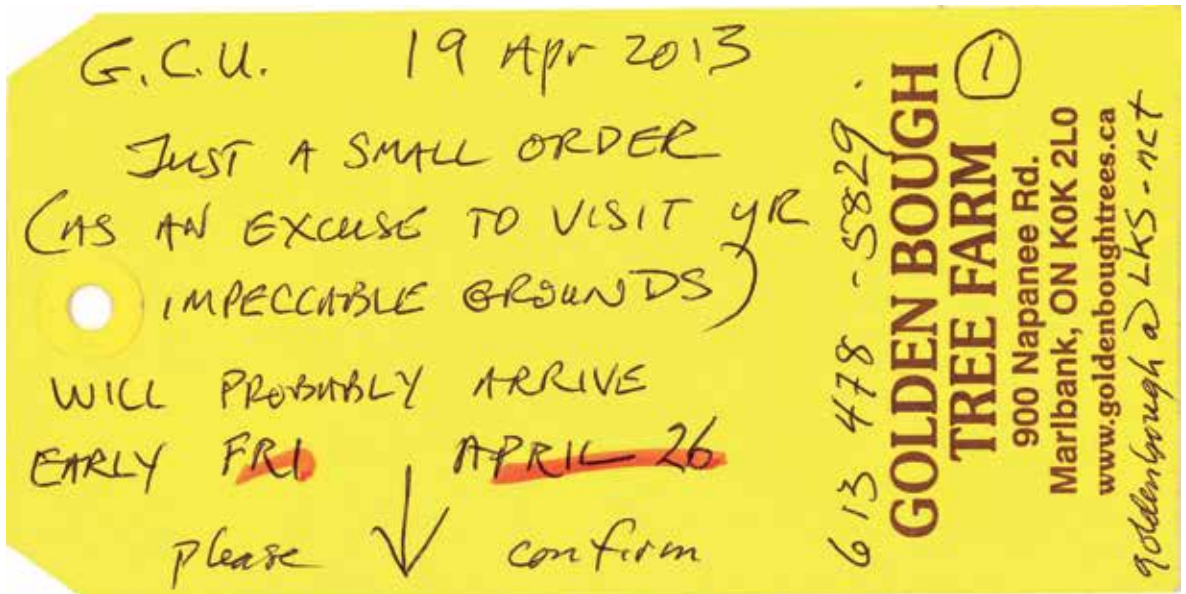 G.C.U. 19 Apr 2013
JUST A SMALL ORDER
(AS AN EXCUSE TO VISIT YR
IMPECCABLE GROUNDS)
WILL PROBABLY ARRIVE
EARLY FRI APRIL 26
please confirm
613 478-5829.
GOLDEN BOUGH
TREE FARM
900 Napanee Rd.
Marlbank, ON K0K 2L0
www.goldenboughtrees.ca
goldenbough@LKS-net
1